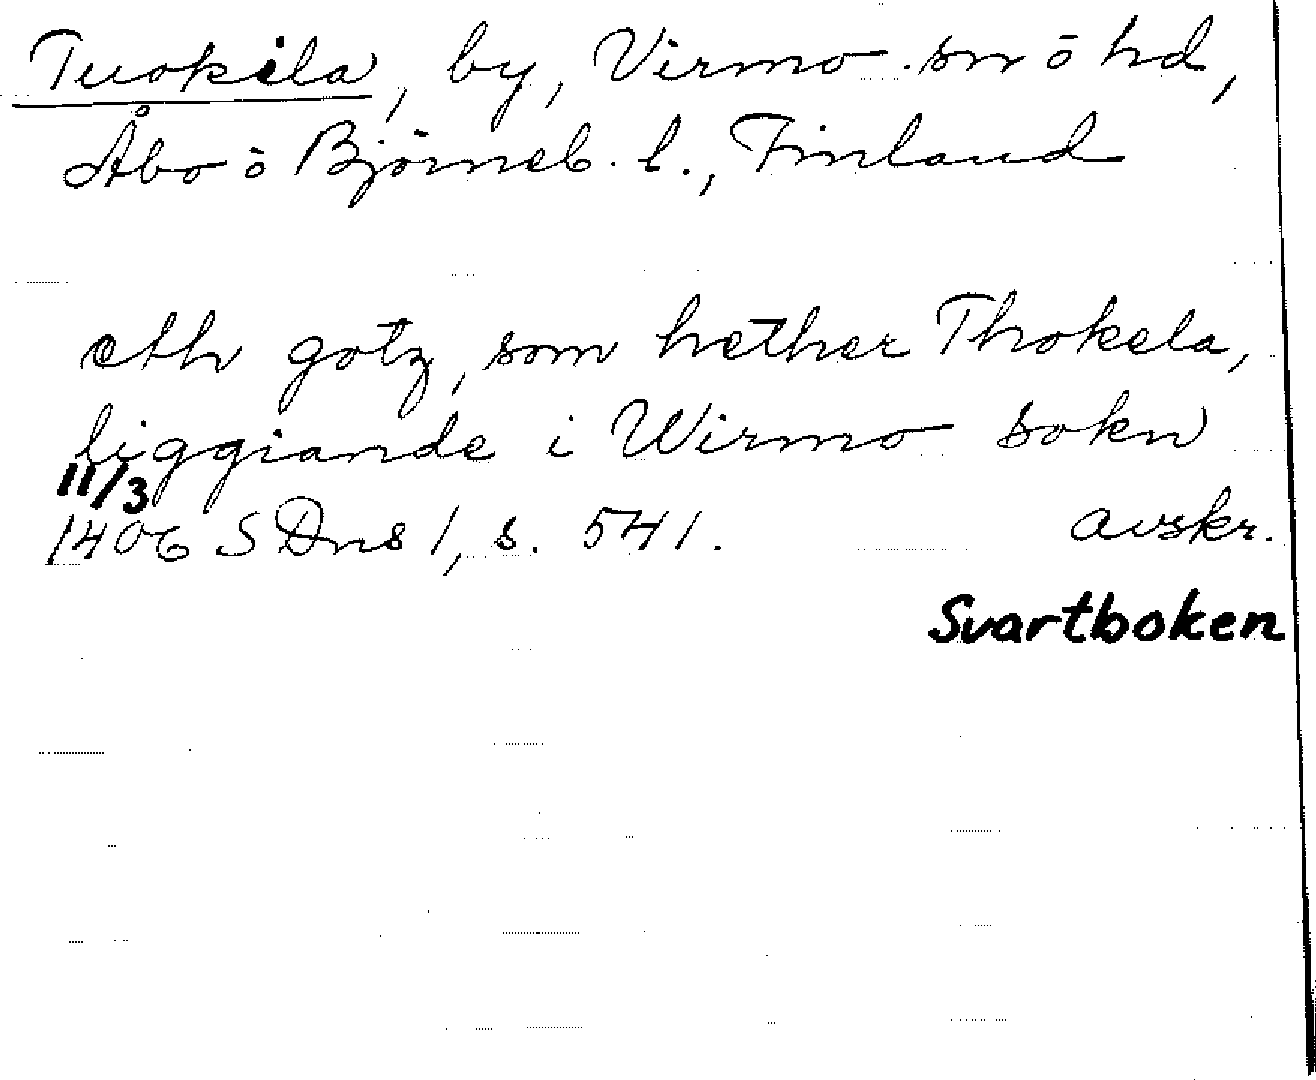 Tuokila, by, Virmo sn ō hd,
Åbo ō Björneb. l., Finland
eth gotz, som hether Thokela,
liggiande i Wirmo sokn
11/3
1406 SDns 1, s. 541. avskr.
Svartboken